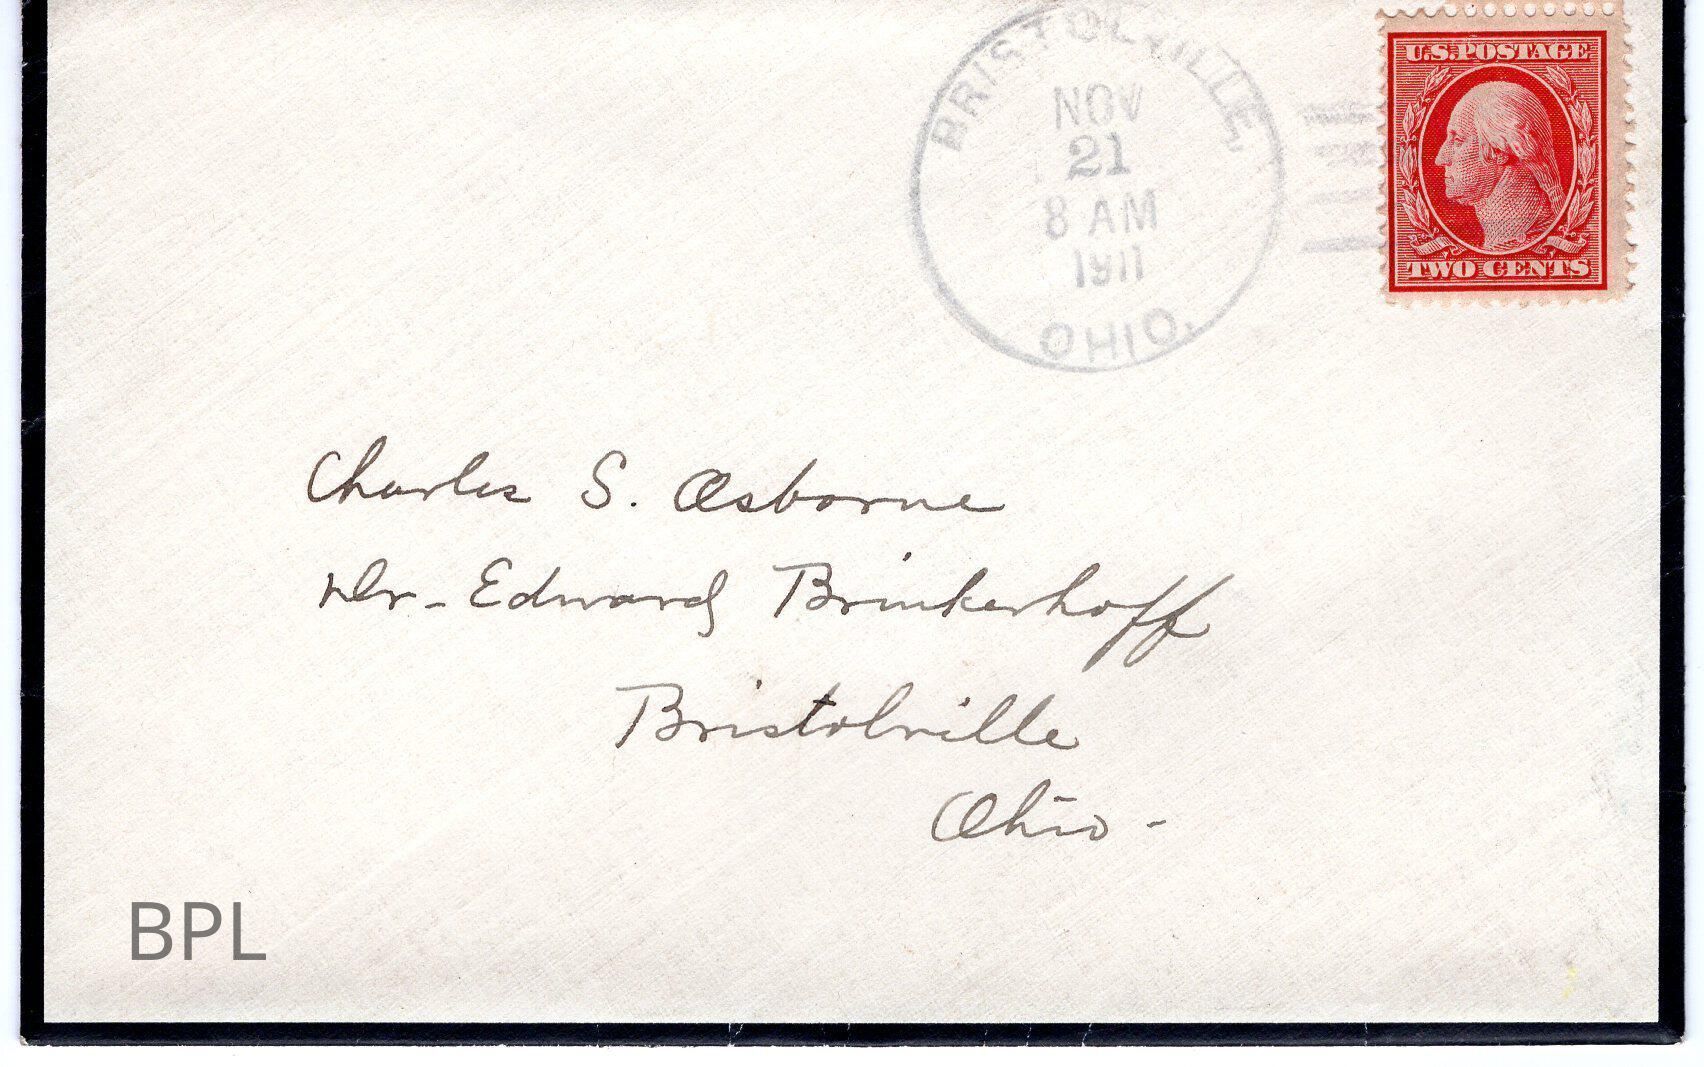 BRISTOLVILLE,
NOV
21
8 AM
1911
OHIO.
U.S. POSTAGE
TWO CENTS
Charles S. Osborne
Dr - Edward Brinkerhoff
Bristolville
Ohio -
BPL